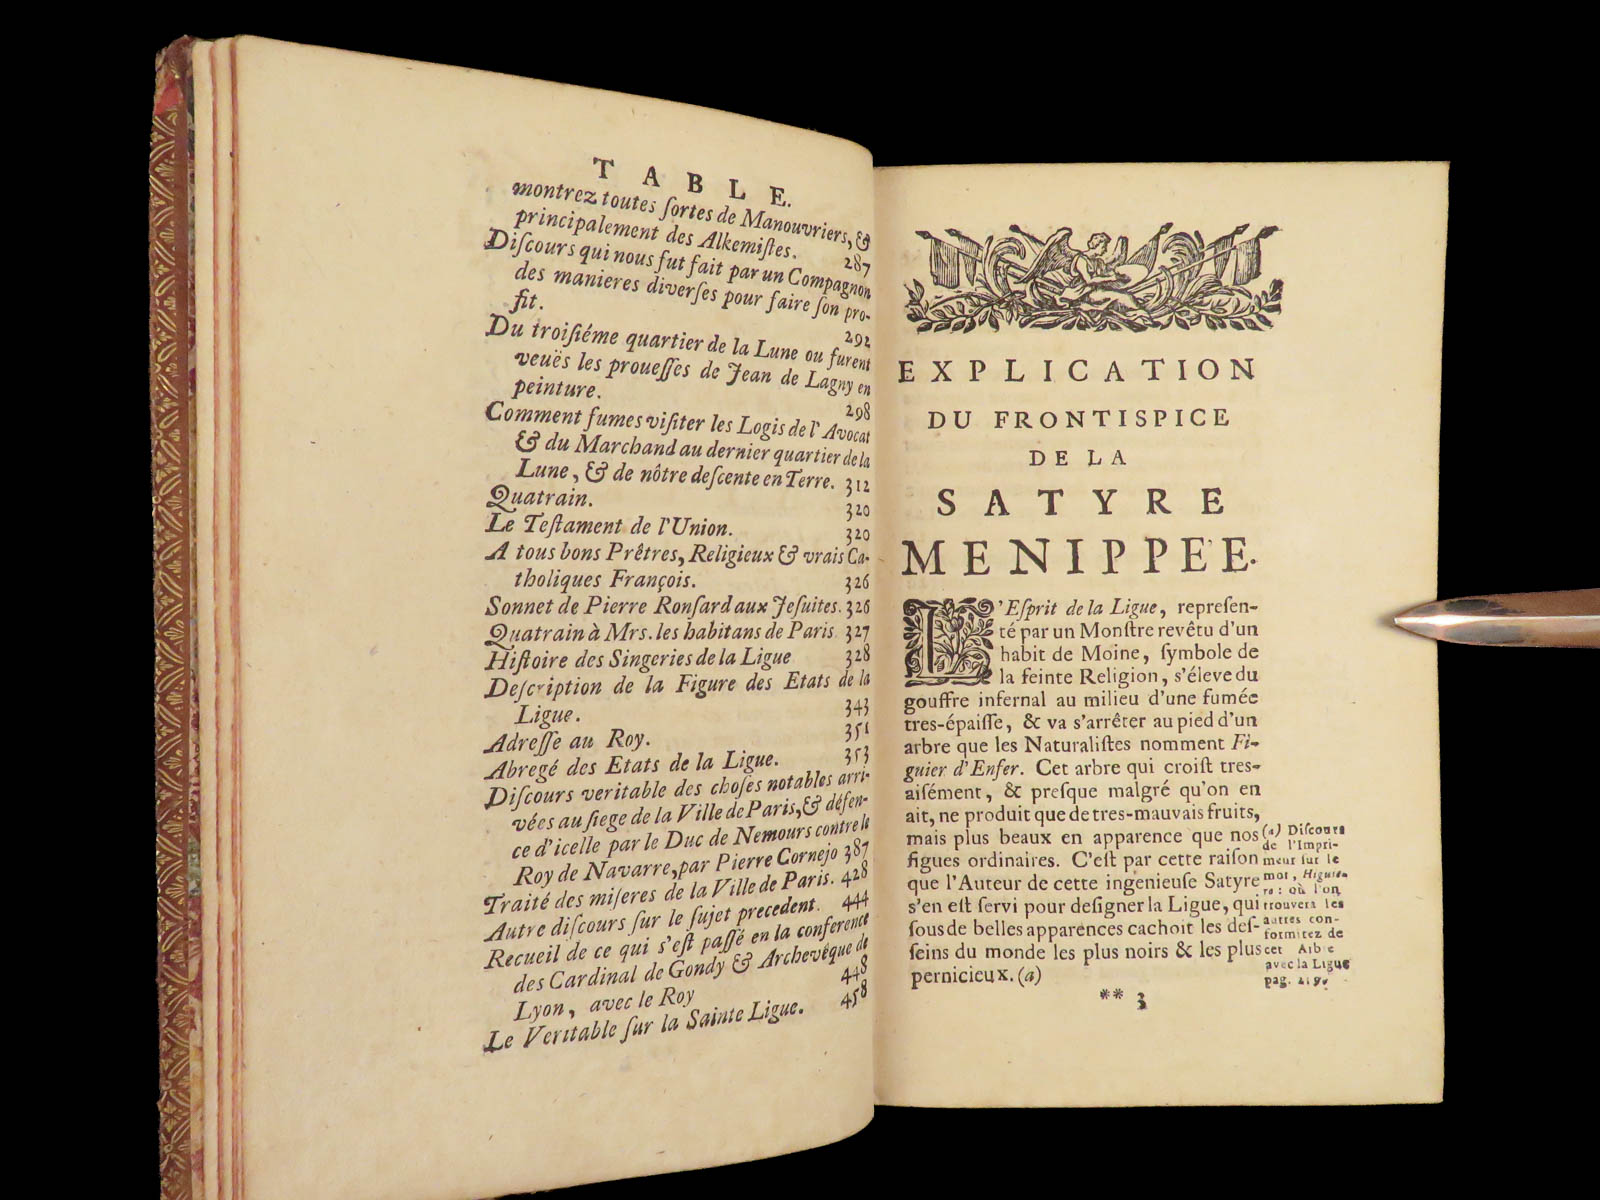 TABLE.
montrez toutes ſortes de Manouvriers, &
principalement des Alkemiſtes. 287
Diſcours qui nous fut fait par un Compagnon
des manieres diverſes pour faire ſon pro-
fit. 292
Du troiſiéme quartier de la Lune ou furent
veuës les proueſſes de Jean de Lagny en
peinture. 298
Comment fumes viſiter les Logis de l'Avocat
& du Marchand au dernier quartier de la
Lune, & de nôtre deſcente en Terre. 312
Quatrain. 320
Le Teſtament de l'Union. 320
A tous bons Prêtres, Religieux & vrais Ca-
tholiques François. 326
Sonnet de Pierre Ronſard aux Jeſuites. 326
Quatrain à Mrs. les habitans de Paris. 327
Hiſtoire des Singeries de la Ligue 328
Deſcription de la Figure des Etats de la
Ligue. 343
Adreſſe au Roy. 351
Abregé des Etats de la Ligue. 353
Diſcours veritable des choſes notables arri-
vées au ſiege de la Ville de Paris, & défen-
ce d'icelle par le Duc de Nemours contre le
Roy de Navarre, par Pierre Cornejo 387
Traité des miſeres de la Ville de Paris. 428
Autre diſcours ſur le ſujet precedent. 444
Recueil de ce qui s'eſt paſſé en la conference
des Cardinal de Gondy & Archevêque de
Lyon, avec le Roy 448
Le Veritable ſur la Sainte Ligue. 458
EXPLICATION
DU FRONTISPICE
DE LA
SATYRE
MENIPPE'E.
L'Eſprit de la Ligue, repreſen-
té par un Monſtre revêtu d'un
habit de Moine, ſymbole de
la feinte Religion, s'éleve du
gouffre infernal au milieu d'une fumée
tres-épaiſſe, & va s'arrêter au pied d'un
arbre que les Naturaliſtes nomment Fi-
guier d'Enfer. Cet arbre qui croiſt tres-
aiſément, & preſque malgré qu'on en
ait, ne produit que de tres-mauvais fruits,
mais plus beaux en apparence que nos
figues ordinaires. C'eſt par cette raiſon
que l'Auteur de cette ingenieuſe Satyre
s'en eſt ſervi pour deſigner la Ligue, qui
ſous de belles apparences cachoit les deſ-
ſeins du monde les plus noirs & les plus
pernicieux. (a)
(a) Diſcours
de l'Impri-
meur ſur le
mot, Higuie-
ro: où l'on
trouvera les
autres con-
formitez de
cet Arbre
avec la Ligue
pag.
** 3